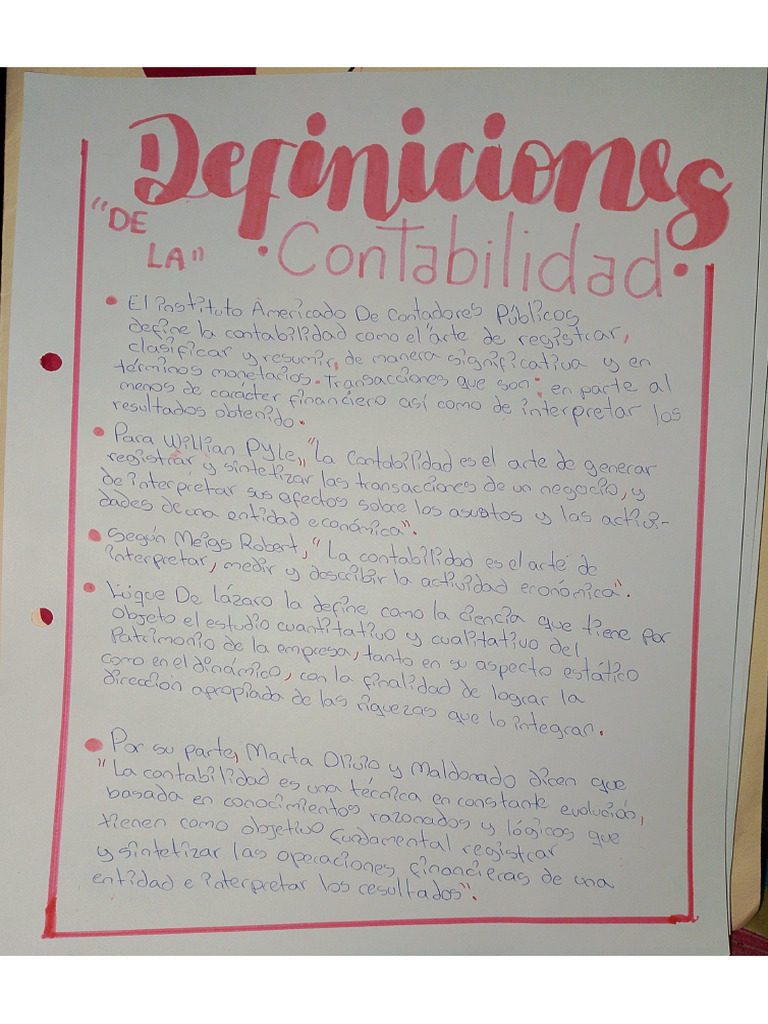 Definiciones
"DE
LA"
• Contabilidad •
• El instituto Americado De Contadores Públicos
define la contabilidad como el "arte de registrar,
clasificar y resumir, de manera significativa y en
términos monetarios. Transacciones que son; en parte al
menos de carácter financiero así como de interpretar los
resultados obtenido.
• Para Willian Pyle, "La contabilidad es el arte de generar
registrar y sintetizar las transacciones de un negocio, y
de interpretar sus afectos sobre los asuntos y las activi-
dades de una entidad económica".
• Según Meigs Robert, "La contabilidad es el arte de
interpretar, medir y describir la actividad económica".
• Fúque De Lázaro la define como la ciencia que tiene por
objeto el estudio cuantitativo y cualitativo del
Patrimonio de la empresa, tanto en su aspecto estático
como en el dinámico, con la finalidad de lograr la
dirección apropiada de las riquezas que lo integran.
• Por su parte, Marta Olivio y Maldonado dicen que
"La contabilidad es una técnica en constante evolució,
basada en conocimientos razonados y lógicos que
tienen como objetivo fundamental registrar
y sintetizar las operaciones financieras de una
entidad e interpretar los resultados".